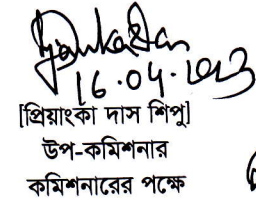 16.04.2023
[প্রিয়াংকা দাস শিপু]
উপ-কমিশনার
কমিশনারের পক্ষে